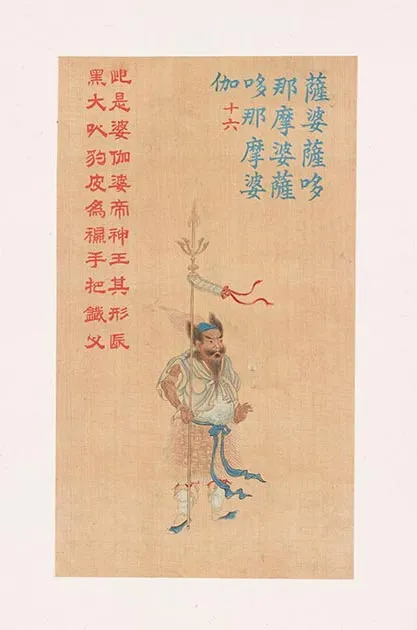 薩婆薩哆
那摩婆薩
哆那摩婆
伽
十六
此是婆伽婆帝神王其形長
黑大以豹皮為裩手把鐵叉